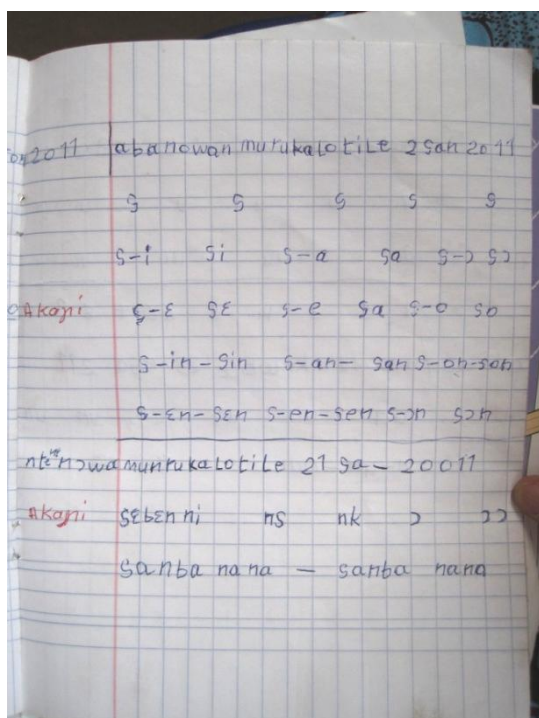 2011 abanowanmurukalotile 2 san 2011
s s s s s
s-i si s-a sa s-ɔ sɔ
Akaɲi s-ɛ sɛ s-e sa s-o so
s-in-sin s-an- san s-on-son
s-ɛn-sɛn s-en-sen s-ɔn sɔn
munrukalotile 21 sa- 20011
Akaɲi
sanba nana — sanba nana